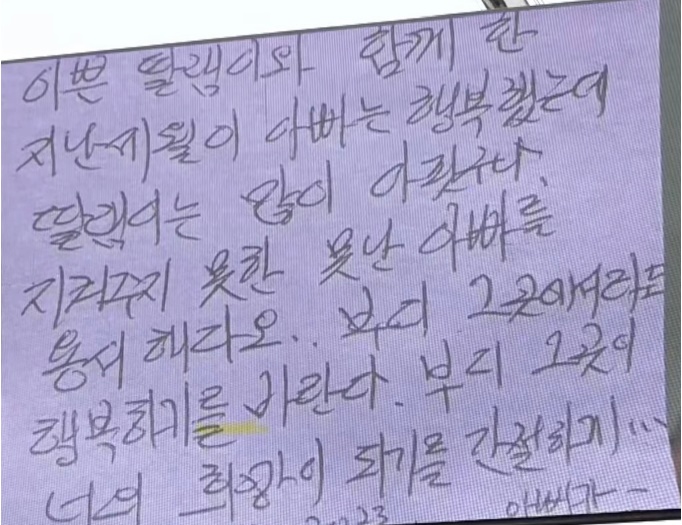 이쁜 딸램이와 함께 한
지난세월이 아빠는 행복했는데
딸램이는 많이 아팟구나.
지켜주지 못한 못난 아빠를
용서해다오.. 부디 그곳에서라도
행복하기를 바란다. 부디 그곳이
너의 희망이 되기를 간절하게...
아빠가-